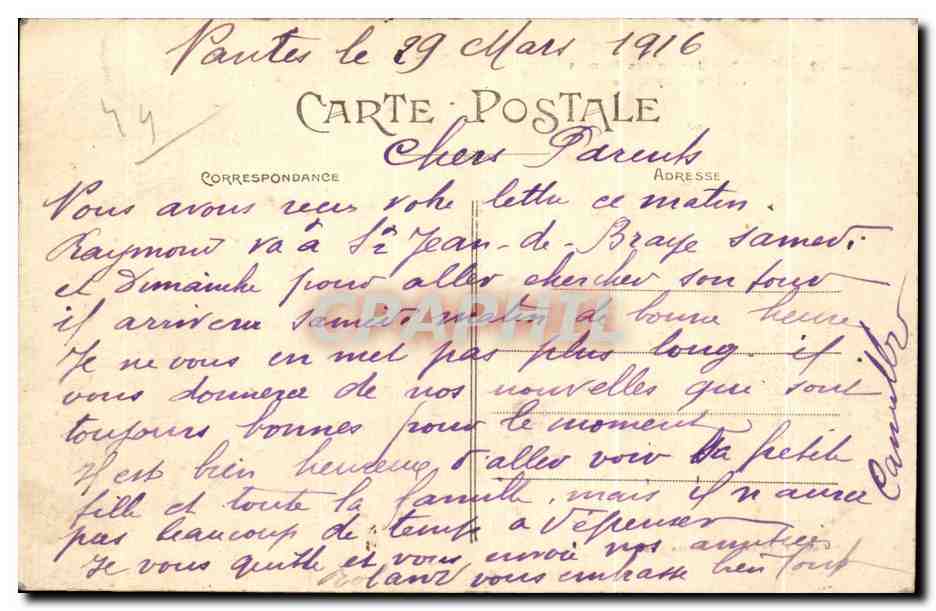 Nantes le 29 Mars 1916
44
CARTE POSTALE
Chers Parents
CORRESPONDANCE
ADRESSE
Nous avons recu votre lettre ce matin.
Raymond va à St Jean-de-Braye samedi
et Dimanche pour aller chercher son
il arrivera samedi matin de bonne heure
Je ne vous en met pas plus long. il
vous donnera de nos nouvelles qui sont
toujours bonnes pour le moment
Il est bien heureux d aller voir sa petite
fille et toute la famille, mais il n aura
pas beaucoup de temps a dépenser
Je vous quitte et vous envoie nos amitiées
Roland vous embrasse bien tous
Camille
CPAPHIL